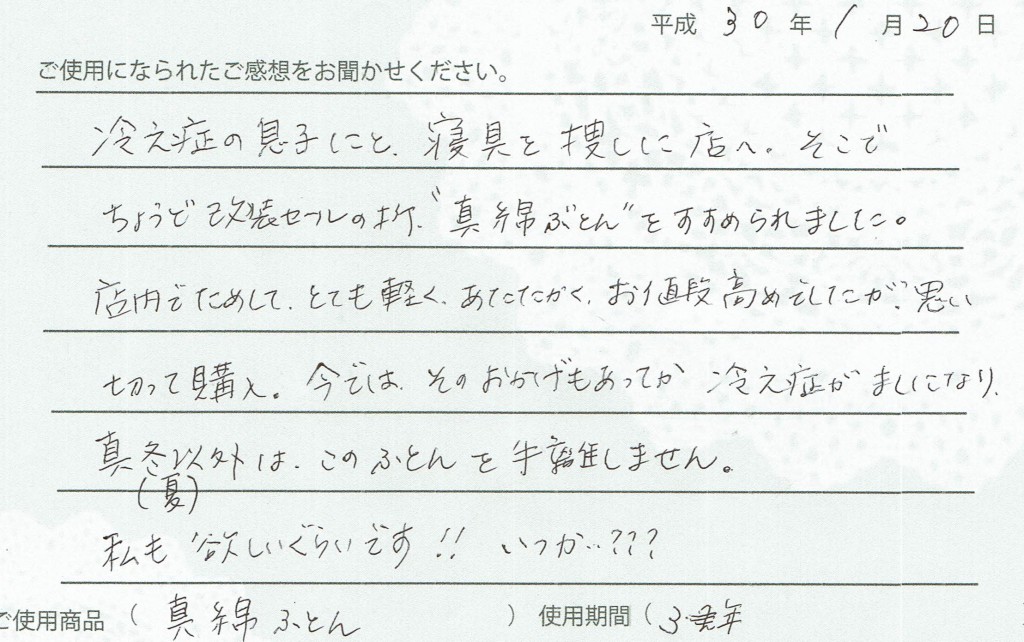 平成 30 年 1 月 20 日
ご使用になられたご感想をお聞かせください。
冷え症の息子にと、寝具を捜しに店へ。そこで
ちょうど改装セールの折、“真綿ぶとん”をすすめられました。
店内でためして、とても軽く、あたたかく、お値段高めでしたが、思い
切って購入。今では、そのおかげもあってか 冷え症がましになり、
真冬以外は、このふとんを手離しません。
(夏)
私も欲しいぐらいです!! いつか…???
ご使用商品 ( 真綿ふとん ) 使用期間 ( 3年